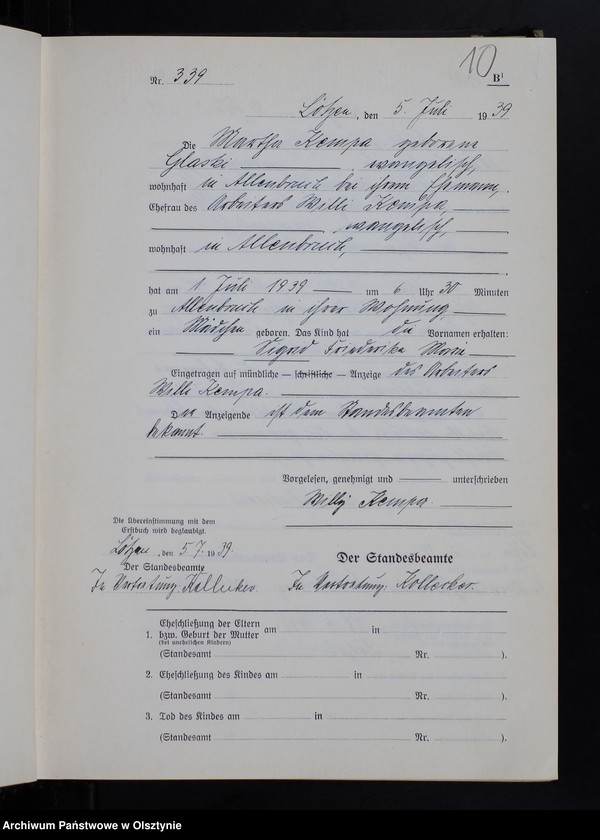 10
Nr. 339
B¹
Lötzen, den 5. Juli 1939
Die Martha Kempa geborene
Glaski evangelisch,
wohnhaft in Allenbruch bei ihrem Ehemann,
Ehefrau des Arbeiters Willi Kempa,
evangelisch,
wohnhaft in Allenbruch,
hat am 1. Juli 1939 um 6 Uhr 30 Minuten
zu Allenbruch in ihrer Wohnung
ein Mädchen geboren. Das Kind hat die Vornamen erhalten:
Sigrid Friederike Marie
Eingetragen auf mündliche — schriftliche — Anzeige des Arbeiters
Willi Kempa.
Der Anzeigende ist dem Standesbeamten
bekannt.
Vorgelesen, genehmigt und unterschrieben
Willy Kempa
Die Übereinstimmung mit dem
Erstbuch wird beglaubigt.
Lötzen, den 5.7.1939.
Der Standesbeamte
In Vertretung:
Der Standesbeamte
In Vertretung:
Eheschließung der Eltern
1. bzw. Geburt der Mutter am in
(bei unehelichen Kindern)
(Standesamt Nr. ).
2. Eheschließung des Kindes am in
(Standesamt Nr. ).
3. Tod des Kindes am in
(Standesamt Nr. ).
Archiwum Państwowe w Olsztynie